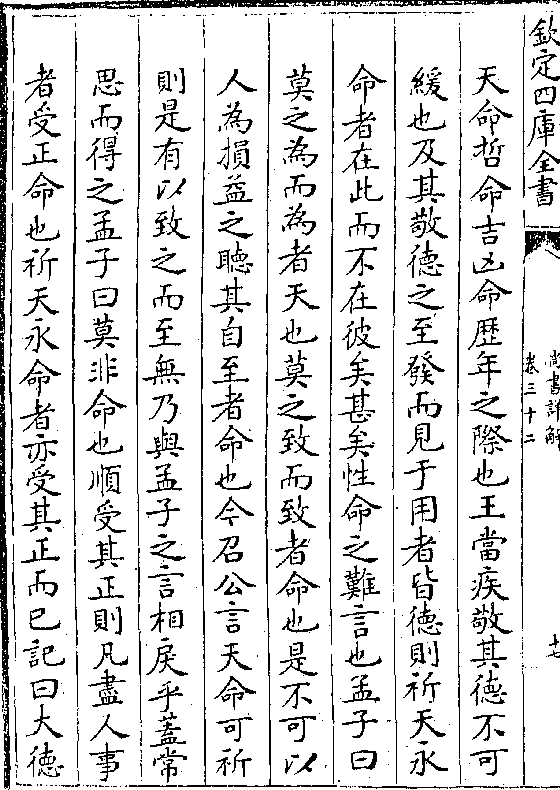 欽定四庫全書
尚書詳解
卷三十二
十七
天命哲命吉凶命歴年之際也王當疾敬其德不可
緩也及其敬德之至發而見于用者皆德則祈天永
命者在此而不在彼矣甚矣性命之難言也孟子曰
莫之為而為者天也莫之致而致者命也是不可以
人為損益之聽其自至者命也今召公言天命可祈
則是有以致之而至無乃與孟子之言相戾乎蓋常
思而得之孟子曰莫非命也順受其正則凡盡人事
者受正命也祈天永命者亦受其正而已記曰大德